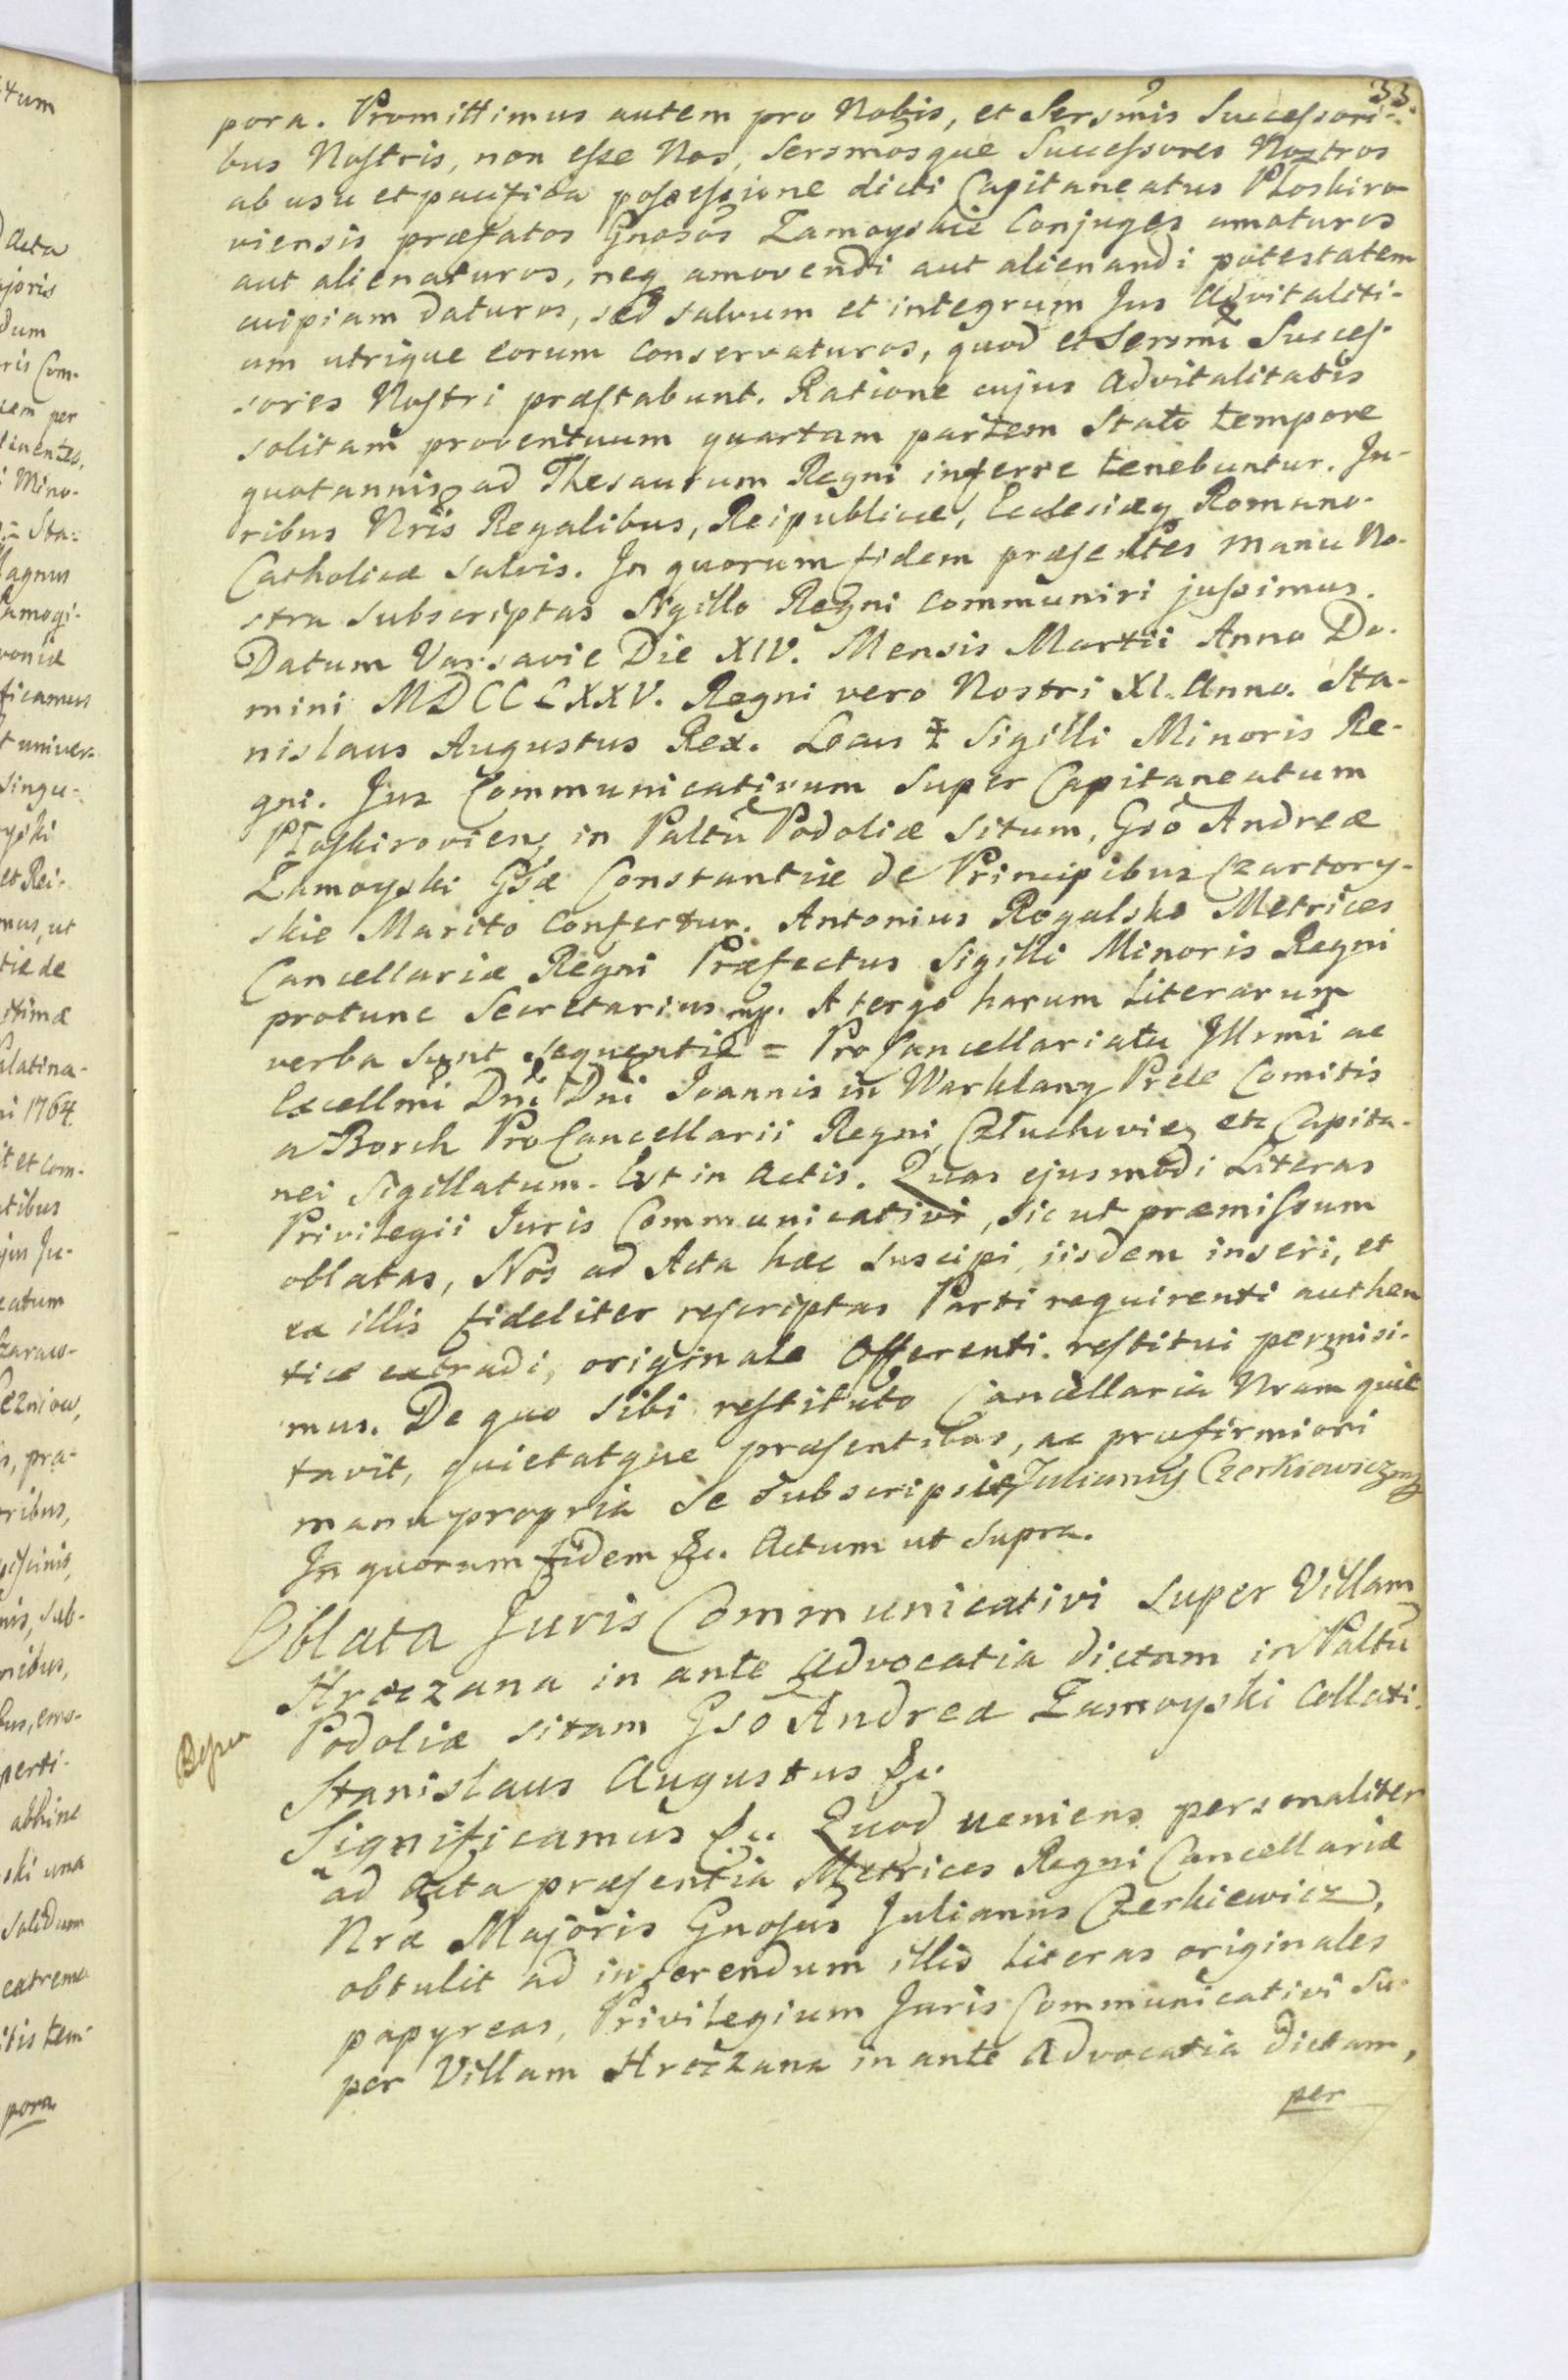 33.
pora. Promittimus autem pro Nobis, et Sersmis Succeſsori-
bus Noſtris, non eſse Nos, Sersmosque Succeſsores Nostros
ab usu et pacifica poſseſsione dicti Capitaneatus Płoskiro-
viensis præfatos Gnosos Zamoyskie Conjuges amoturos
aut alienaturos, neq amovendi aut alienandi potestatem
cuipiam daturos, sed salvum et integrum Jus Advitaliti-
um utrique eorum conservaturos, quod et Sersmi Succeſ-
sores Noſtri præſtabunt. Ratione cujus Advitalitatis
solitam proventuum quartam partem Stato tempore
quotannis ad Thesaurum Regni inferre tenebuntur. Ju-
ribus Nris Regalibus, Reipublicæ, Ecclesiæq Romano-
Catholicæ salvis. In quorum fidem præſentes manu No-
stra subscriptas Sigillo Regni communiri juſsimus.
Datum Varsavie Die XIV. Mensis Martii Anno Do-
mini MDCCLXXV. Regni vero Nostri XI. Anno. Sta-
nislaus Augustus Rex. Locus ‡ Sigilli Minoris Re-
gni. Jus Communicativum super Capitaneatum
Płoſkiroviens in Paltu Podoliæ situm, Gso Andreæ
Zamoyski Gsæ Constantiæ de Principibus Czartory-
skie Marito confertur. Antonius Rogalski Metrices
Cancellariæ Regni Præfectus Sigilli Minoris Regni
protunc Secretarius mp. A tergo harum Literarum
verba sunt sequentia = Pro Cancellariatu Jllrmi ac
Excellmi Dni Dni Joannis in Warklany Prele Comitis
a Borch Pro Cancellarii Regni, Człuchovien etc Capita-
nei Sigillatum. Est in Actis. Quas ejusmodi Literas
Privilegii Juris Communicativi, sicut præmiſsum
oblatas, Nos ad Acta hæc suscipi, iisdem inseri, et
ex illis fideliter reſcriptas Parti requirenti authen
tice extradi, originale Offerenti reſtitui permisi-
mus. De quo sibi reſtituto Cancellariã Nram quie
tavit, quietatque præſentibus, ac pro firmiori
manu propria se subscripsit, Julianus Czerkiewicz mp
In quorum fidem &c. Actum ut Supra.
Oblata Juris Communicativi super Villam
Hroczana in ante Advocatia dictam in Paltu
Podoliæ sitam Gso Andreæ Zamoyski Collati.
Stanislaus Augustus &c.
Significamus &c. Quod veniens personaliter
ad Acta præſentia Metrices Regni Cancellariæ
Nræ Majoris Gnoſus Julianus Czerkiewicz,
obtulit ad inserendum illis Literas originales
papyreas, Privilegium Juris Communicativi su-
per Villam Hroczana in ante Advocatia dictam,
per